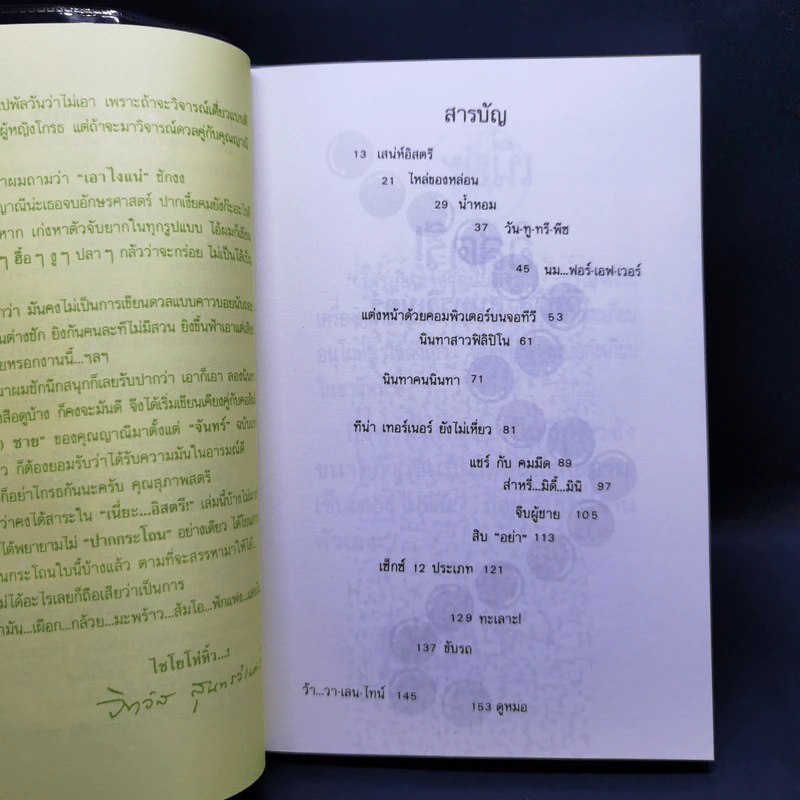 ปพัลวันว่าไม่เอา เพราะถ้าจะวิจารณ์เดี่ยวแบบดี
ผู้หญิงโกรธ แต่ถ้าจะมาวิจารณ์ดวลคู่กับคุณญาณี
าผมถามว่า "เอาไงแน่" ชักงง
ญาณีน่ะเธอจบอักษรศาสตร์ ปากเงี้ยคมยังก๊ะอะไร
หาก เก่งหาตัวจับยากในทุกรูปแบบ ไอ้ผมก็เขียน
ๆ อื้อ ๆ งู ๆ ปลา ๆ กลัวว่าจะกร่อย ไม่เป็นโล้เป็น
กว่า มันคงไม่เป็นการเขียนดวลแบบคาวบอยนับถอย
นต่างชัก ยิงกันคนละทีไม่มีสวน ยิงขึ้นฟ้าเอาแต่เสียง
ยหรอกงานนี้...ฯลฯ
าผมชักนึกสนุกก็เลยรับปากว่า เอาก็เอา ลองนินทา
สือดูบ้าง ก็คงจะมันดี จึงได้เริ่มเขียนเคียงคู่กับคอลัมน์
) ชาย" ของคุณญาณีมาตั้งแต่ "จันทร์" ฉบับ
ว ก็ต้องยอมรับว่าได้รับความมันในอารมณ์ดี
ก็อย่าโกรธกันนะครับ คุณสุภาพสตรี
ว่าคงได้สาระใน "เนี่ยะ...อิสตรี!" เล่มนี้บ้างไม่มาก
ได้พยายามไม่ "ปากกระโถน" อย่างเดียว ได้โยน
นกระโถนใบนี้บ้างแล้ว ตามที่จะสรรหามาให้ได้
ม่ได้อะไรเลยก็ถือเสียว่าเป็นการ
ามัน...เผือก...กล้วย...มะพร้าว...ส้มโอ...ฟักแฟง...
ไชโยโห่หิ้ว...!
สารบัญ
13 เสน่ห์อิสตรี
21 ไหล่ของหล่อน
29 น้ำหอม
37 วัน-ทู-ทรี-พีซ
45 นม...ฟอร์-เอฟ-เวอร์
แต่งหน้าด้วยคอมพิวเตอร์บนจอทีวี 53
นินทาสาวฟิลิปิโน 61
นินทาคนนินทา 71
ทีน่า เทอร์เนอร์ ยังไม่เหี่ยว 81
แชร์ กับ คมมีด 89
ส่าหรี่...มิดี้...มินิ 97
จีบผู้ชาย 105
สิบ "อย่า" 113
เซ็กซ์ 12 ประเภท 121
129 ทะเลาะ!
137 ขับรถ
ว้า...วา-เลน-ไทน์ 145
153 ดูหมอ